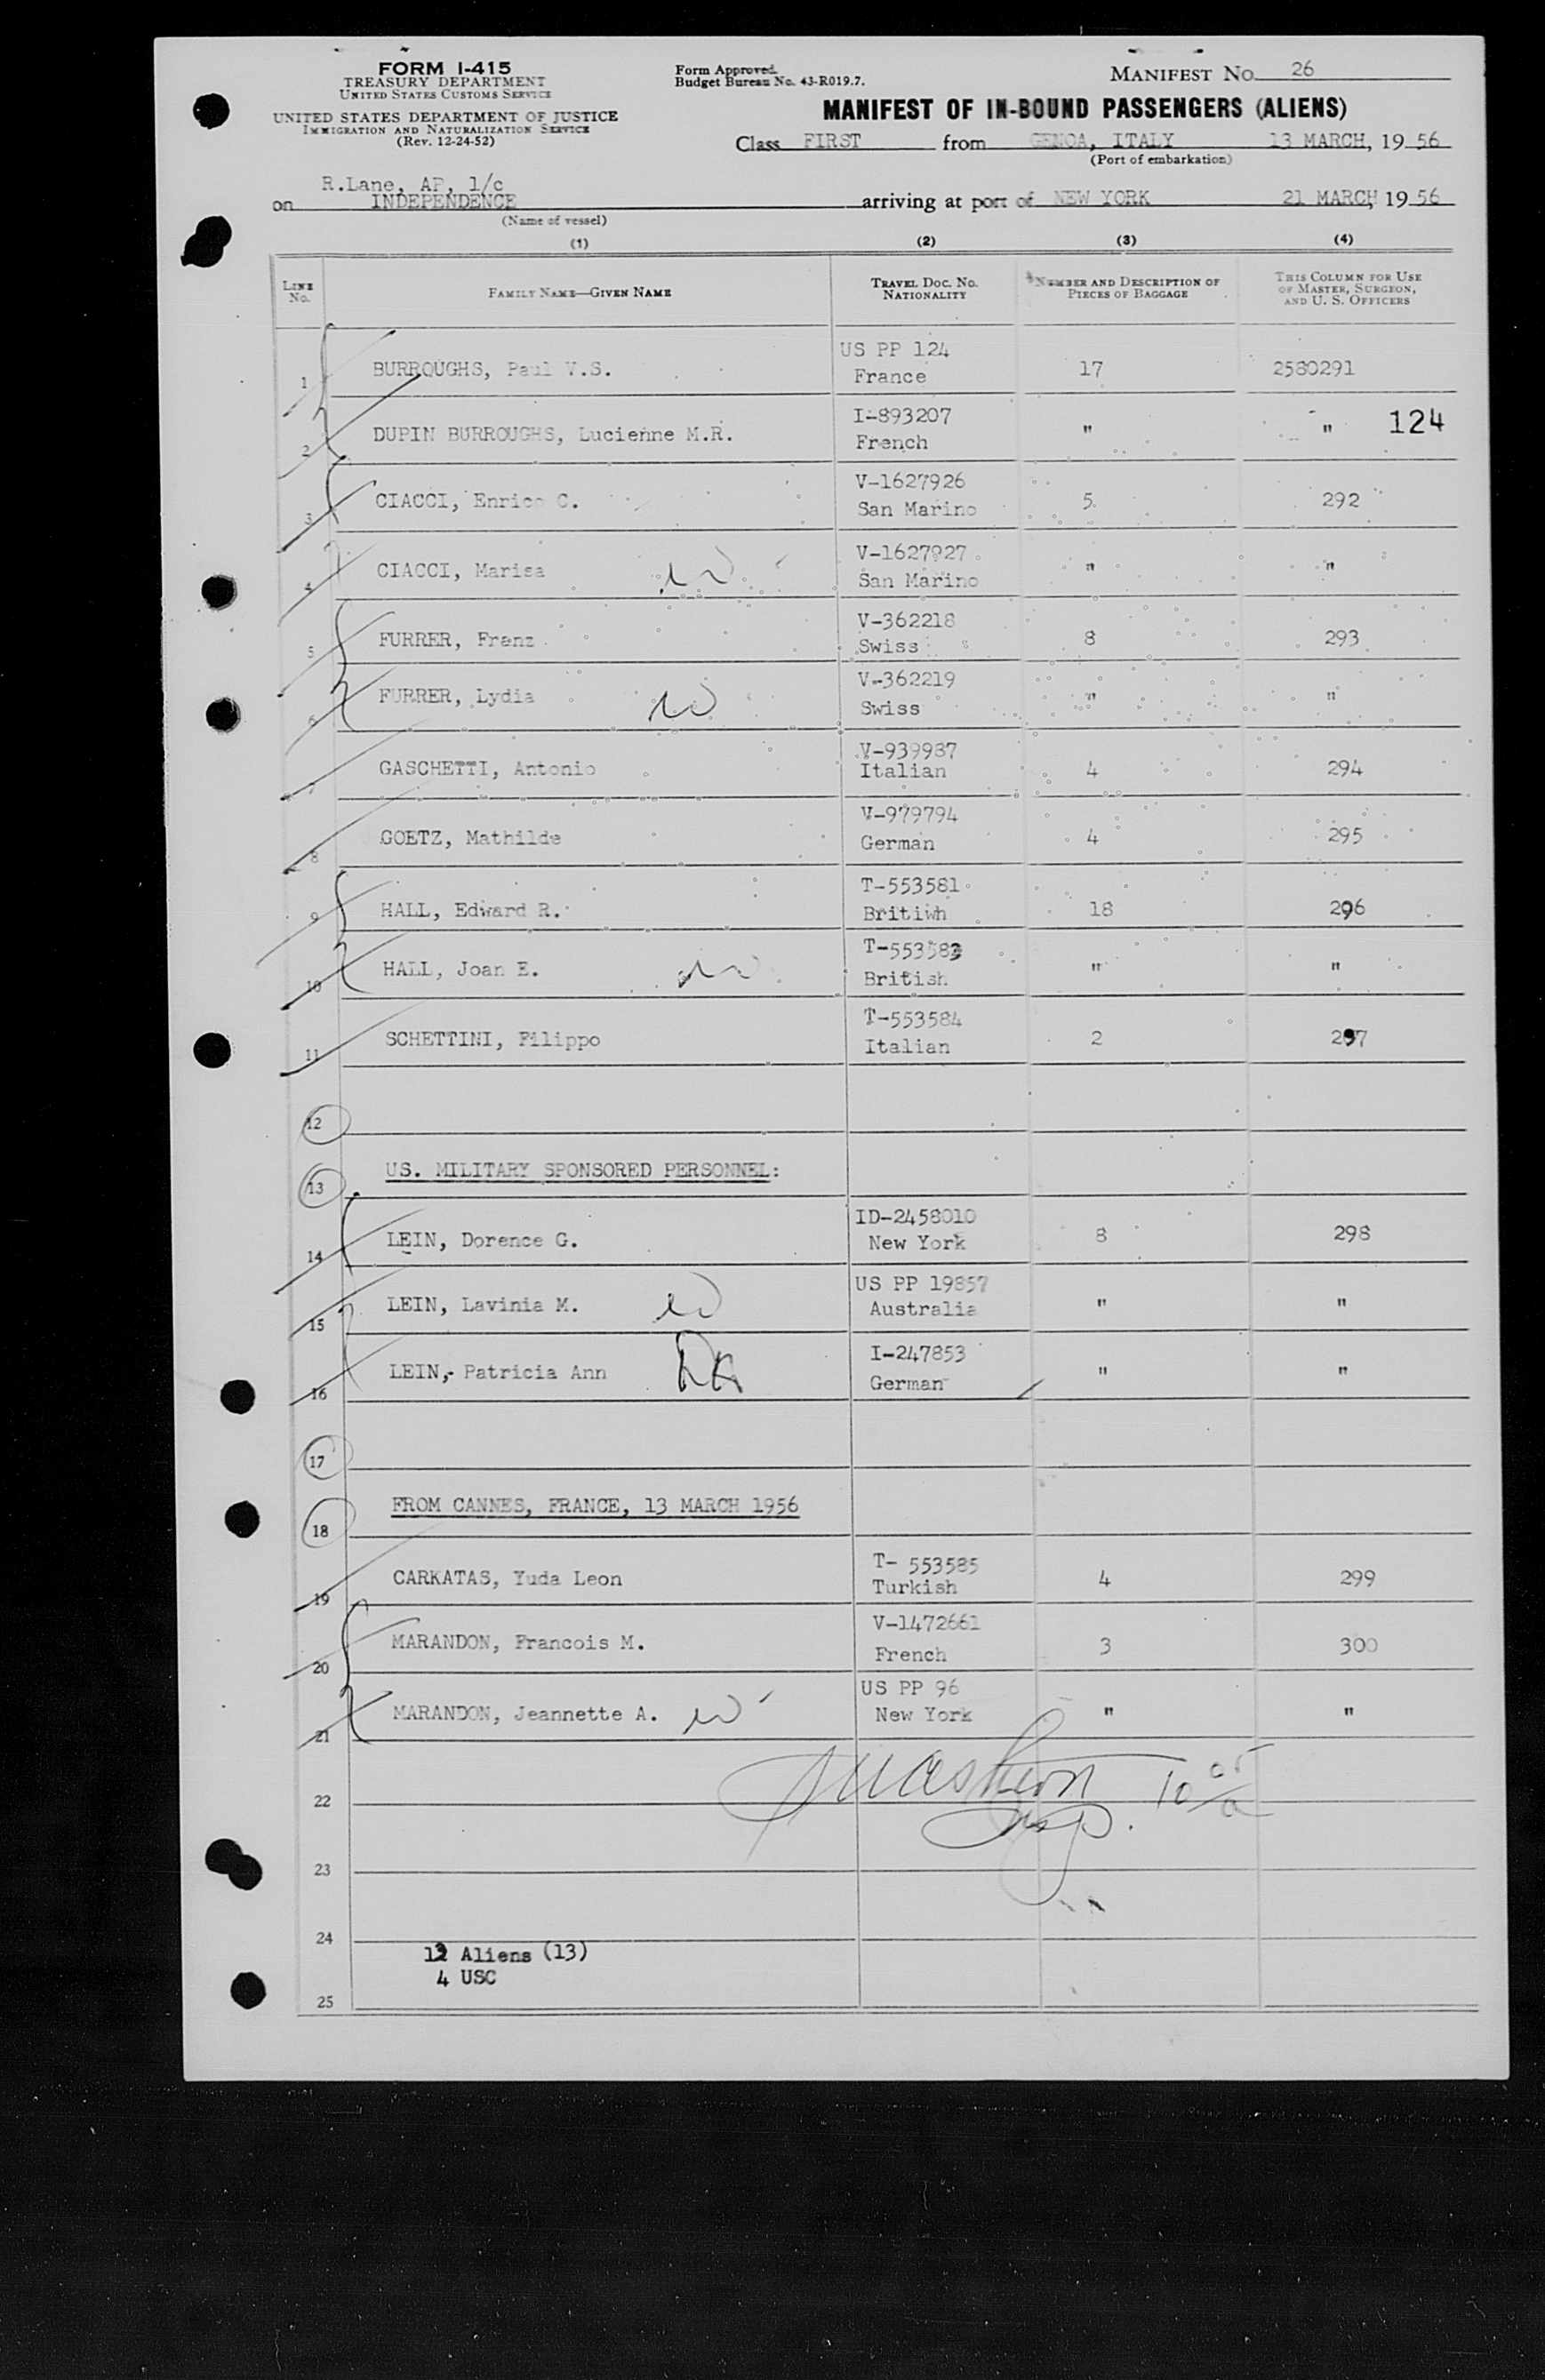 FORM I-415
TREASURY DEPARTMENT
UNITED STATES CUSTOMS SERVICE
UNITED STATES DEPARTMENT OF JUSTICE
IMMIGRATION AND NATURALIZATION SERVICE
(Rev. 12-24-52)
Form Approved.
Budget Bureau No. 43-R019.7.
MANIFEST NO. 26
MANIFEST OF IN-BOUND PASSENGERS (ALIENS)
Class FIRST from GENOA, ITALY 13 MARCH, 19 56
(Port of embarkation)
R.Lane, AP, 1/c
on INDEPENDENCE arriving at port of NEW YORK 21 MARCH, 19 56
(Name of vessel)
(1) (2) (3) (4)
LINE No. FAMILY NAME—GIVEN NAME TRAVEL DOC. NO. NATIONALITY NUMBER AND DESCRIPTION OF PIECES OF BAGGAGE THIS COLUMN FOR USE OF MASTER, SURGEON, AND U. S. OFFICERS
1 BURROUGHS, Paul V.S. US PP 124 France 17 2580291
2 DUPIN BURROUGHS, Lucienne M.R. I-893207 French " " 124
3 CIACCI, Enrico C. V-1627926 San Marino 5 292
4 CIACCI, Marisa V-1627927 San Marino " "
5 FURRER, Franz V-362218 Swiss 8 293
6 FURRER, Lydia V-362219 Swiss " "
7 GASCHETTI, Antonio V-939987 Italian 4 294
8 GOETZ, Mathilde V-979794 German 4 295
9 HALL, Edward R. T-553581 Britiwh 18 296
10 HALL, Joan E. T-553583 British " "
11 SCHETTINI, Filippo T-553584 Italian 2 297
12
13 US. MILITARY SPONSORED PERSONNEL:
14 LEIN, Dorence G. ID-2458010 New York 8 298
15 LEIN, Lavinia M. US PP 19857 Australia " "
16 LEIN, Patricia Ann I-247853 German " "
17
18 FROM CANNES, FRANCE, 13 MARCH 1956
19 CARKATAS, Yuda Leon T- 553585 Turkish 4 299
20 MARANDON, Francois M. V-1472661 French 3 300
21 MARANDON, Jeannette A. US PP 96 New York " "
22
Insp.
23
24
12 Aliens (13)
4 USC
25